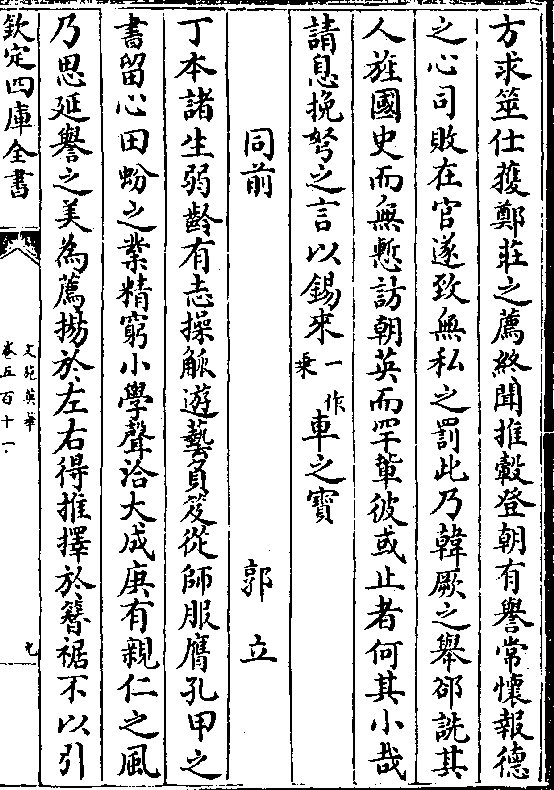 方求筮仕獲鄭莊之薦終聞推轂登朝有譽常懷報德
之心司敗在官遂致無私之罰此乃韓厥之舉郤詵其
人旌國史而無慙訪朝英而罕軰彼或止者何其小哉
請息挽弩之言以錫來一作乗車之寶
同前 郭立
丁本諸生弱齡有志操觚遊藝負笈從師服膺孔甲之
書留心田蚡之業精窮小學聲洽大成庾有親仁之風
乃思延譽之美為薦搒於左右得推擇於簪裾不以引
欽定四庫全書
文苑英華
卷五百十一
九